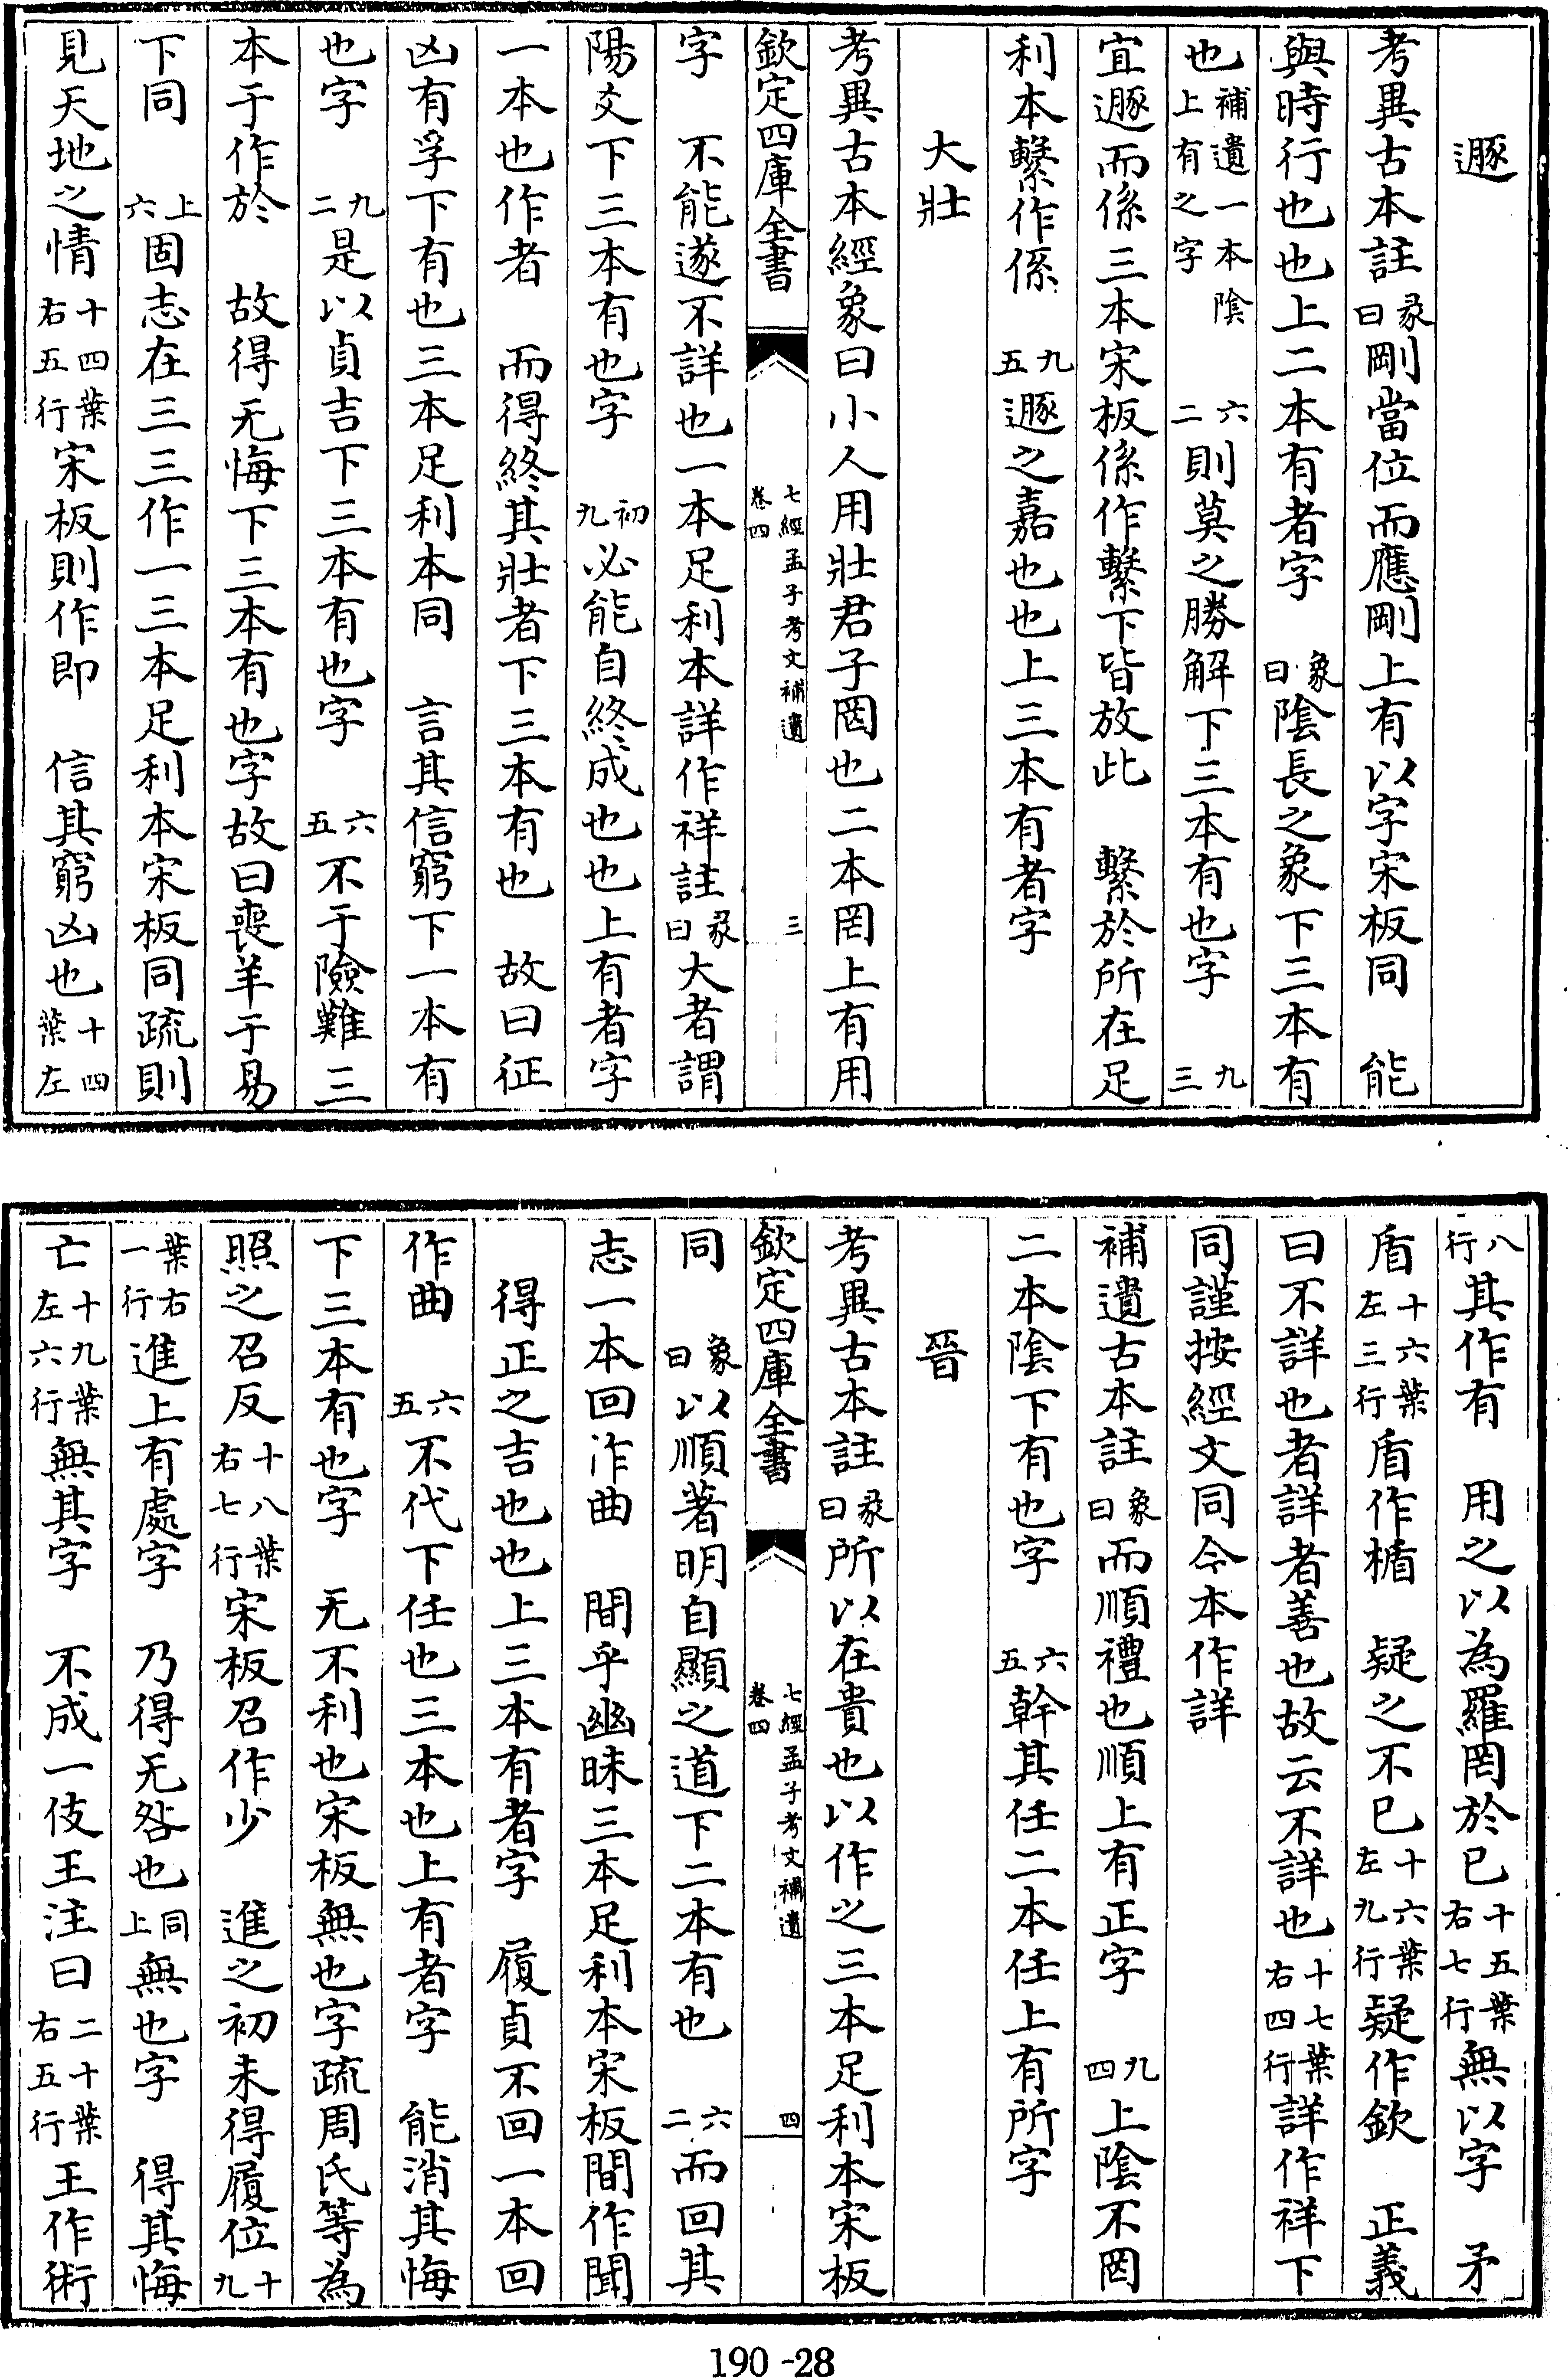 遯
考異古本註彖曰剛當位而應剛上有以字宋板同　能
與時行也也上二本有者字　象曰陰長之象下三本有
也補遺一本陰上有之字　六二則莫之勝解下三本有也字　九三
宜遯而係三本宋板係作繫下皆放此　繫於所在足
利本繫作係　九五遯之嘉也也上三本有者字
大壯
考異古本經象曰小人用壯君子罔也二本罔上有用
欽定四庫全書　七經孟子考文補遺卷四　三
字　不能遂不詳也一本足利本詳作祥註彖曰大者謂
陽爻下三本有也字　初九必能自終成也也上有者字
一本也作者　而得終其壯者下三本有也　故曰征
凶有孚下有也三本足利本同　言其信窮下一本有
也字　九二是以貞吉下三本有也字　六五不于險難三
本于作於　故得无悔下三本有也字故曰喪羊于易
下同　上六固志在三三作一三本足利本宋板同疏則
見天地之情十四葉右五行宋板則作即　信其窮凶也十四葉左
八行其作有　用之以為羅罔於已十五葉右七行無以字　矛
盾十六葉左三行盾作楯　疑之不已十六葉左九行疑作欽　正義
曰不詳也者詳者善也故云不詳也十七葉右四行詳作祥下
同謹按經文同今本作詳
補遺古本註象曰而順禮也順上有正字　九四上陰不罔
二本陰下有也字　六五幹其任二本任上有所字
晉
考異古本註彖曰所以在貴也以作之三本足利本宋板
欽定四庫全書　七經孟子考文補遺卷四　四
同　象曰以順著明自顯之道下二本有也　六二而回其
志一本回作曲　間乎幽昧三本足利本宋板間作聞
得正之吉也也上三本有者字　履貞不回一本回
作曲　六五不代下任也三本也上有者字　能消其悔
下三本有也字　无不利也宋板無也字疏周氏等為
照之召反十八葉右七行宋板召作少　進之初未得履位十九
葉右一行進上有處字　乃得无咎也同上無也字　得其悔
亡十九葉左六行無其字　不成一伎王注曰二十葉右五行王作術
190-28